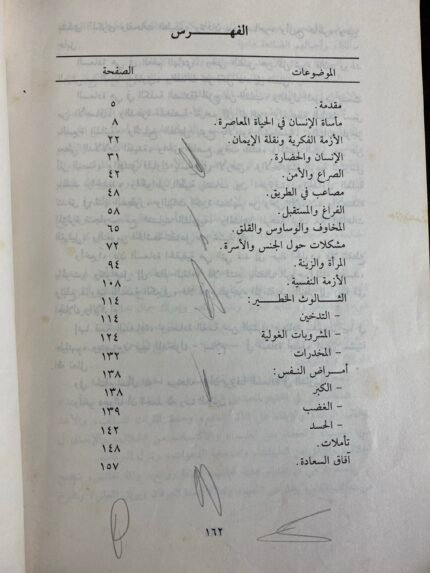 الفهرس
الموضوعات الصفحة
مقدمة. ٥
مأساة الإنسان في الحياة المعاصرة. ٨
الأزمة الفكرية ونقلة الإيمان. ٢٢
الإنسان والحضارة. ٣١
الصراع والأمن. ٤٢
مصاعب في الطريق. ٤٨
الفراغ والمستقبل. ٥٨
المخاوف والوساوس والقلق. ٦٥
مشكلات حول الجنس والأسرة. ٧٢
المرأة والزينة. ٩٤
الأزمة النفسية. ١٠٨
الثالوث الخطير: ١١٤
– التدخين ١١٤
– المشروبات الغولية ١٢٤
– المخدرات ١٣٢
أمراض النفس: ١٣٨
– الكبر ١٣٨
– الغضب ١٣٩
– الحسد ١٤٢
تأملات. ١٤٨
آفاق السعادة. ١٥٧
١٦٢